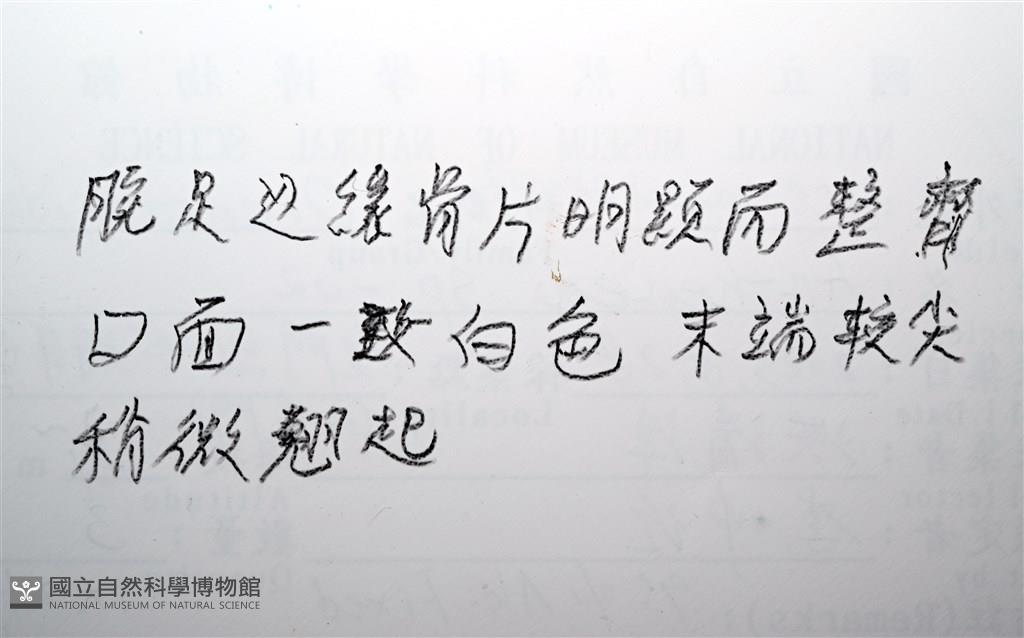 腕足边緣骨片明顯而整齊
口面一致白色 末端較尖
稍微翹起
國立自然科學博物館
NATIONAL MUSEUM OF NATURAL SCIENCE